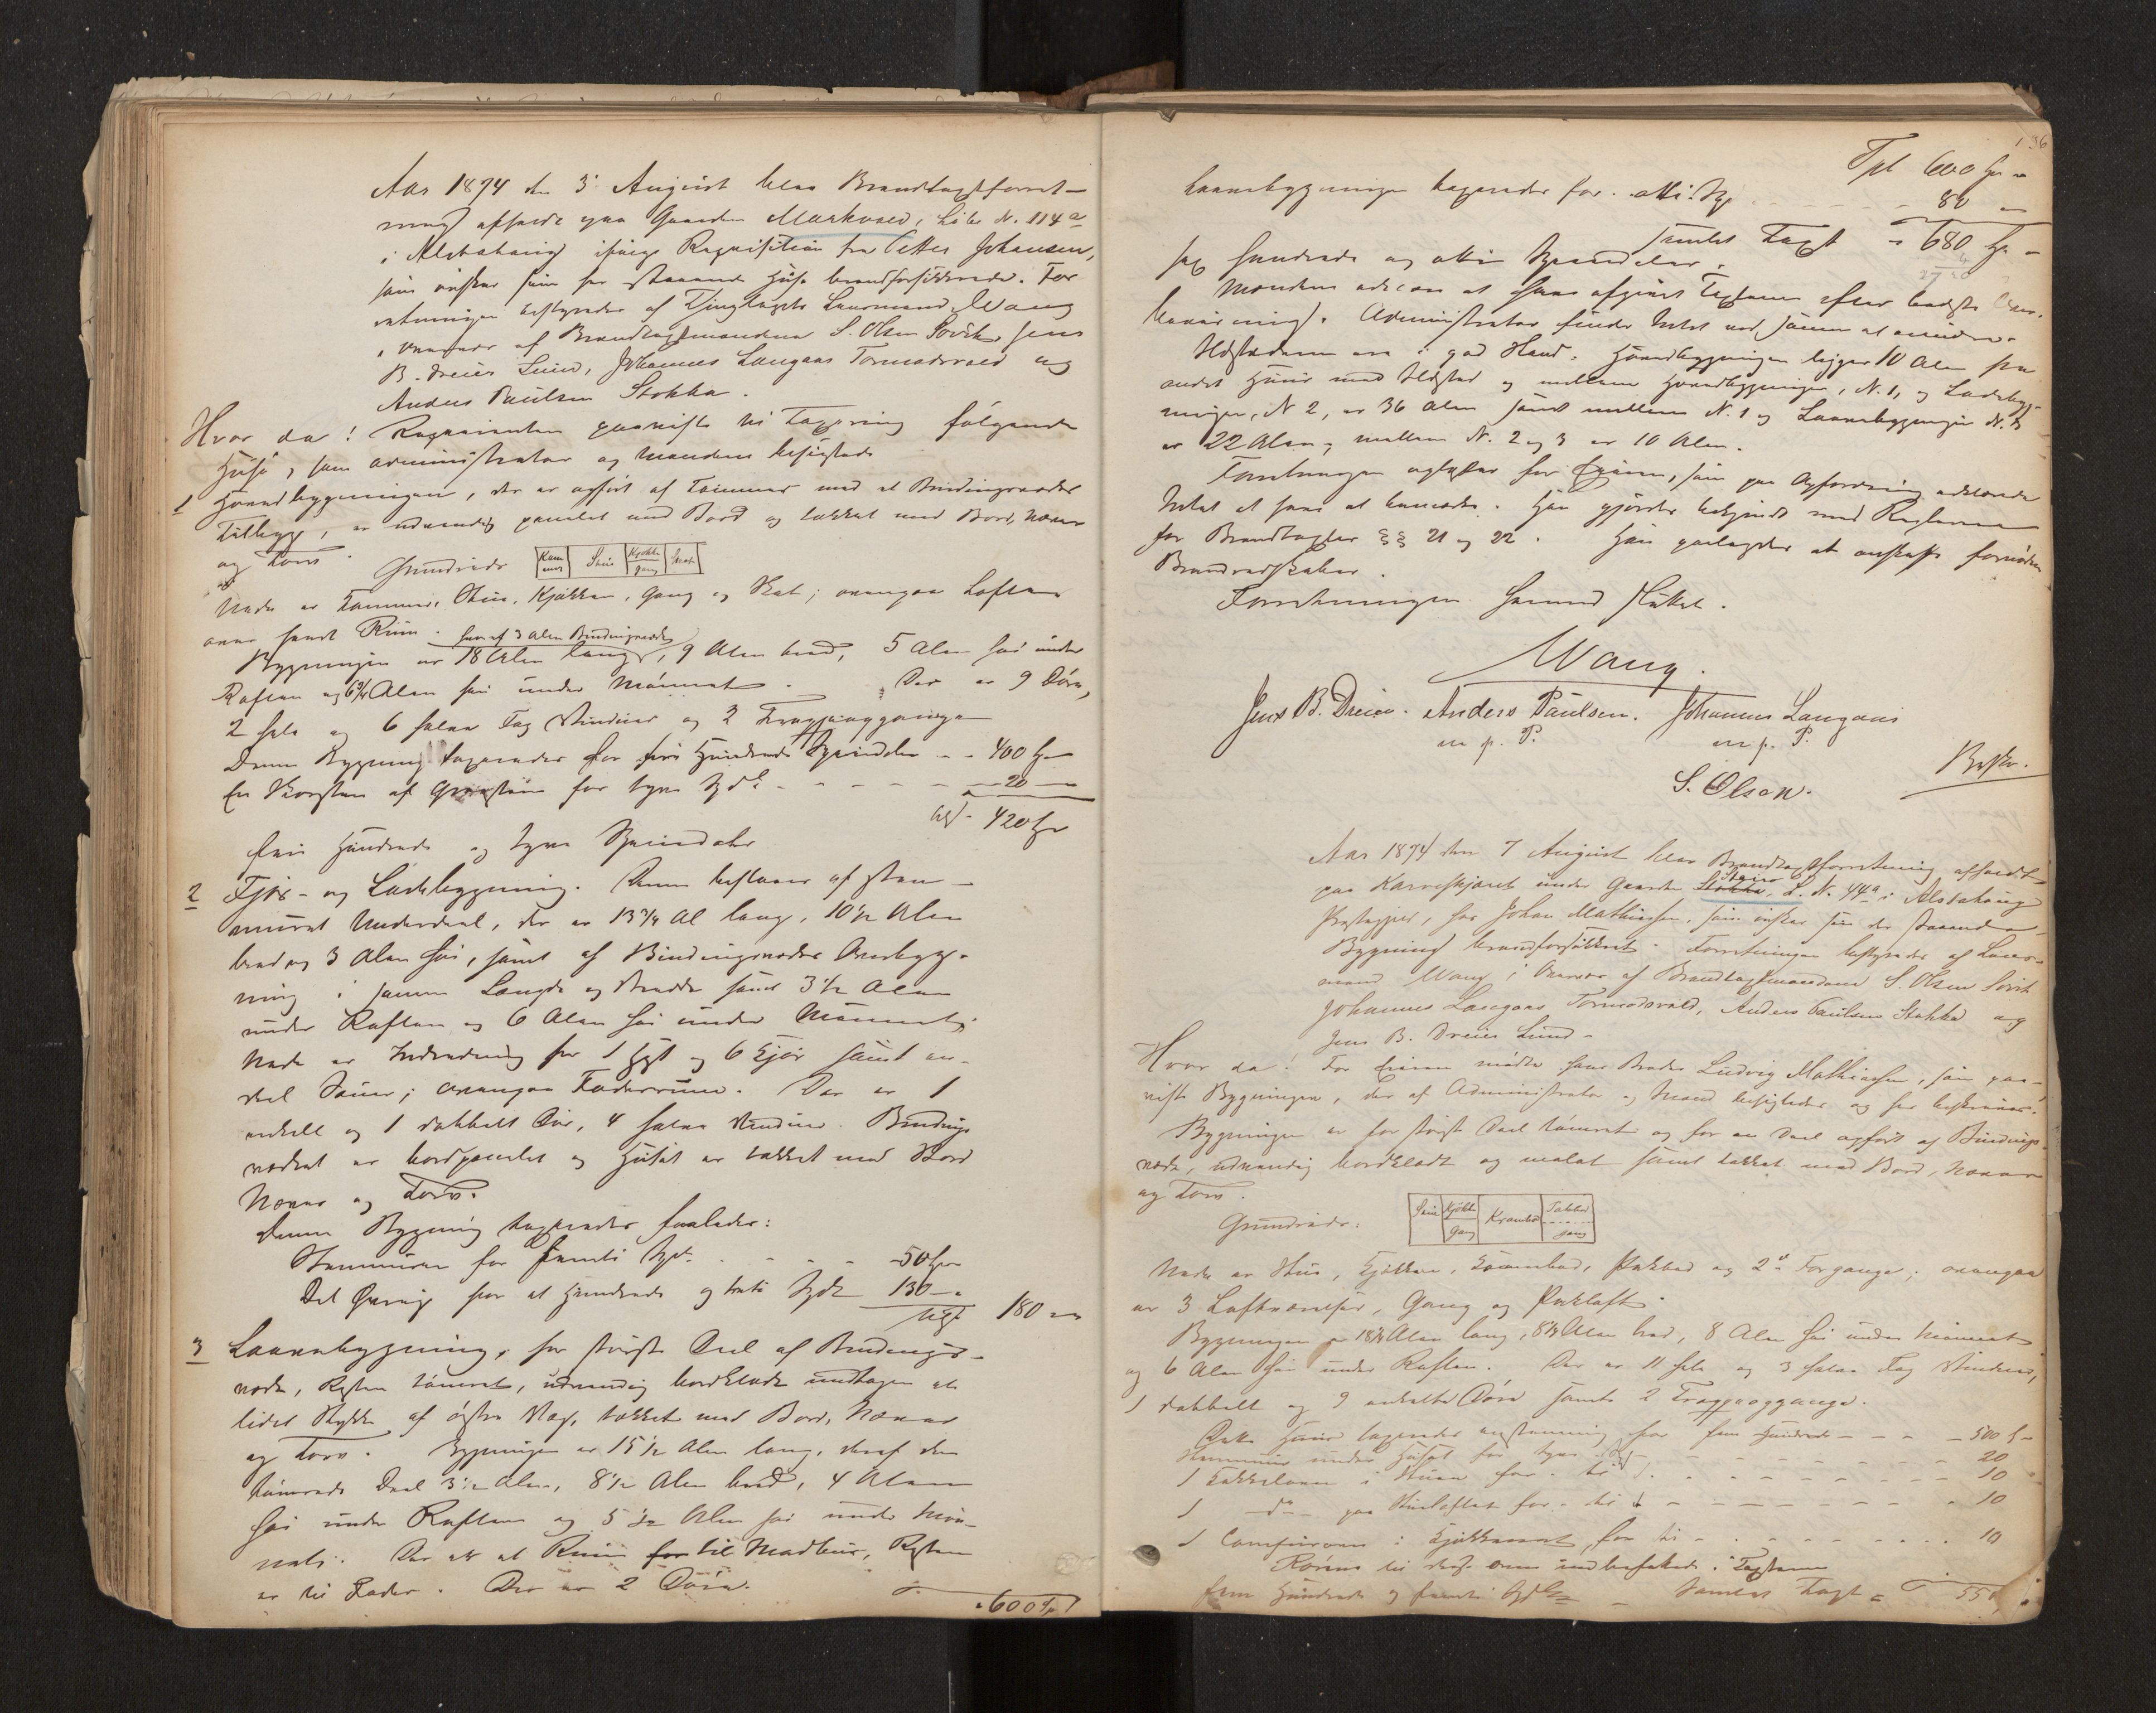 Aar 1874 den 3 August blev Brandtaxtforret-
ning afholdt paa Gaarden Markvold, Løbe N. 114a
i Alstahaug ifølge Requisition fra Petter Johansen,
som ønsker sine her staaende Huse brandforsikkrede. For
retningen bestyredes af Thinglagets Lensmand Wang
i Overvær af Brandtaxtmændene S. Olsen Søvik, Jens
B. Dreier Lund, Johannes Langaas Tormodsvold og
Anders Paulsen Stokka.
Hvor da! Requirenten paaviste til Taxering følgende
Huse, som Administrator og Mændene besigtede
1 Hovedbygningen, der er opført af Tømmer med et Bindingsværks
Tilbygg, er udvendig panelet med Bord og tækket med Bord, Næver
og Torv. Grundrids Kam mer Stue Kjøkk gang Skab
Nede er Kammer, Stue, Kjøkken, Gang og Skab; ovenpaa Loftene
over hvert Rum. heraf 3 Alen Bindingsværk
Bygningen er 18 Alen lang, 9 Alen bred, 5 Alen høi under
Raften og 6 3/4 Alen høi under Mønnet. Der er 9 Døre,
2 hele og 6 halve Fag Vinduer og 2 Trappeopgange
Denne Bygning taxeredes for fire Hundrede Speciedaler - - 400
En Skorsten af Graasten for tyve Spd - - - 20
420
fire Hundrede og tyve Speciedaler
2 Fjøs- og Ladebygning. Denne bestaaer af sten-
muret Underdeel, der er 13 3/4 Al lang, 10 1/2 Alen
bred og 3 Alen høi, samt af Bindingsværks Overbyg-
ning i samme Længde og Bredde samt 3 1/2 Alen
under Raften og 6 Alen høi under Mønnet;
Nede er Indredning for 1 Hest og 6 Kjør samt en
deel Sauer; ovenpaa Foderrum. Der er 1
enkelt og 1 dobbelt Dør, 4 halve Vinduer. Bindings
værket er bordpanelet og Huset er tækket med Bord
Næver og Torv.
Denne Bygning taxeredes saaledes:
Stenmuren for femti Spd. - - - 50
Det Øvrige for et Hundrede og treti Spdr 130 -
180
3 Laanebygning, for største Deel af Bindings-
værk, Resten tømret, udvendig bordklædt undtagen et
lidet Stykke af østre Væg, tækket med Bord, Næver
og Torv. Bygningen er 15 1/2 Alen lang, deraf den
tømrede Deel 3 1/2 Alen, 8 1/2 Alen bred, 4 Alen
høi under Raften og 5 1/2 Alen høi under Møn-
net. Der er et Rum for til Madbur, Resten
er til Foder. Der er 2 Døre.
600
136
600
Laanebygningen taxeredes for otti Sp. - - - 80
samlet Taxt - 680
sex Hundrede og otti Speciedaler.
Mændene erklærede at have afgivet Taxten efter bedste Over-
beviisning. Administrator finder Intet ved samme at erindre.
Ildstederne ere i god Stand. Hovedbygningen ligger 10 Alen fra
andet Huus med Ildsted og mellem Hovedbygningen, N. 1, og Ladebyg-
ningen, N 2, er 36 Alen samt mellem N. 1 og Laanebygningen N. 3
er 22 Alen, mellem N. 2 og 3 er 10 Alen.
Forretningen oplæstes for Eieren, som paa Opfordring erklærede
Intet at have at bemærke. Han gjordes bekjendt med Reglerne
for Brandtaxter §§ 21 og 22. Han paalagdes at anskaffe fornødne
Brandredskaber.
Forretningen hermed sluttet.
Wang.
Jens B. Dreier. Anders Paulsen. Johannes Langaas
m. p. P. m. p. P.
S. Olsen.
Beskr.
Aar 1874 den 7 August blev Brandtaxtforretning afholdt
paa Karveskjæret under Gaarden Stokka, L. N. 44a i Alstahaug
Præstegjeld, hos Johan Mathiasen, som ønsker sin der staaende
Bygning brandforsikkret. Forretningen bestyredes af Lens-
mand Wang i Overvær af Brandtaxtmændene S. Olsen Søvik
Johannes Langaas Tormodsvold, Anders Paulsen Stokka og
Jens B. Dreier Lund.
Hvor da! For Eieren mødte hans Broder Ludvig Mathiasen, som paa-
viste Bygningen, der af Administrator og Mænd besigtedes og her beskrives.
Bygningen er for største Deel tømret og for en Deel opført af Bindings-
værk, udvendig bordklædt og malet samt tækket med Bord, Næver
og Torv.
Grundrids: Stue Kjøkk Gang Krambod Pakbod gang
Nede er Stue, Kjøkken, Krambod, Pakbod og 2de Forgange; ovenpaa
er 3 Loftsværelser, Gang og Pakloft.
Bygningen er 18 3/4 Alen lang, 8 3/4 Alen bred, 8 Alen høi under Mønnet
og 6 Alen høi under Raften. Der er 11 hele og 3 halve Fag Vinduer,
1 dobbelt og 9 enkelte Døre samt 2 Trappeopgange.
Dette Huus taxeredes for fem Hundrede - - - 500
Stenmur under Huset for tyve - - - 20
1 Kakkelovn i Stuen for ti - - - 10
1 do paa Stueloftet for ti - - - 10
1 Comfurovn i Kjøkkenet for ti - - - 10
Rørene til disse ere indbefattede i Taxten
fem Hundrede og femti Spdlr - samlet Taxt = 550